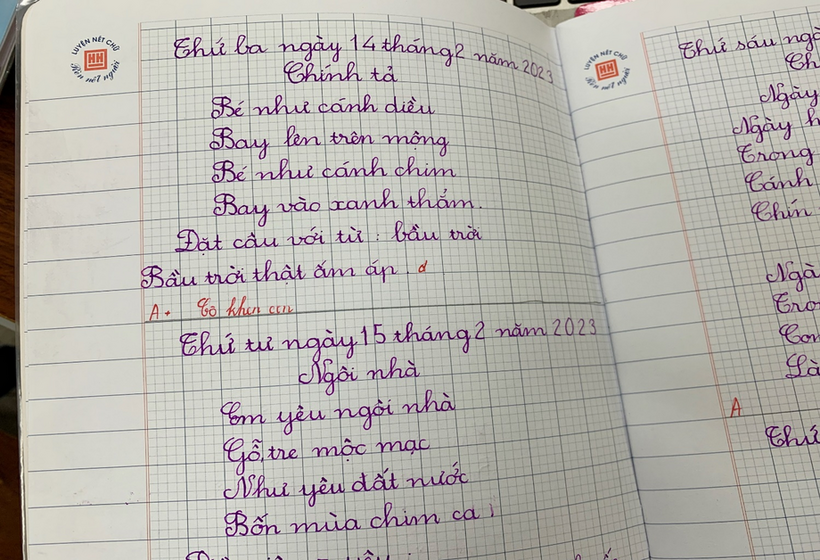 LUYỆN NÉT CHỮ
HH
Rèn nết người
Thứ ba ngày 14 tháng 2 năm 2023
Chính tả
Bé như cánh diều
Bay lên trên mông
Bé như cánh chim
Bay vào xanh thắm.
Đặt câu với từ : bầu trời
Bầu trời thật ấm áp. đ
A+ Cô khen con
Thứ tư ngày 15 tháng 2 năm 2023
Ngôi nhà
Em yêu ngôi nhà
Gỗ, tre mộc mạc
Như yêu đất nước
Bốn mùa chim ca
LUYỆN NÉT CHỮ
HH
Rèn nết người
Thứ sáu ngà
Ch
Ngày
Ngày h
Trong
Cánh
Chín
Ngà
Tro
Con
Là
A
Thứ